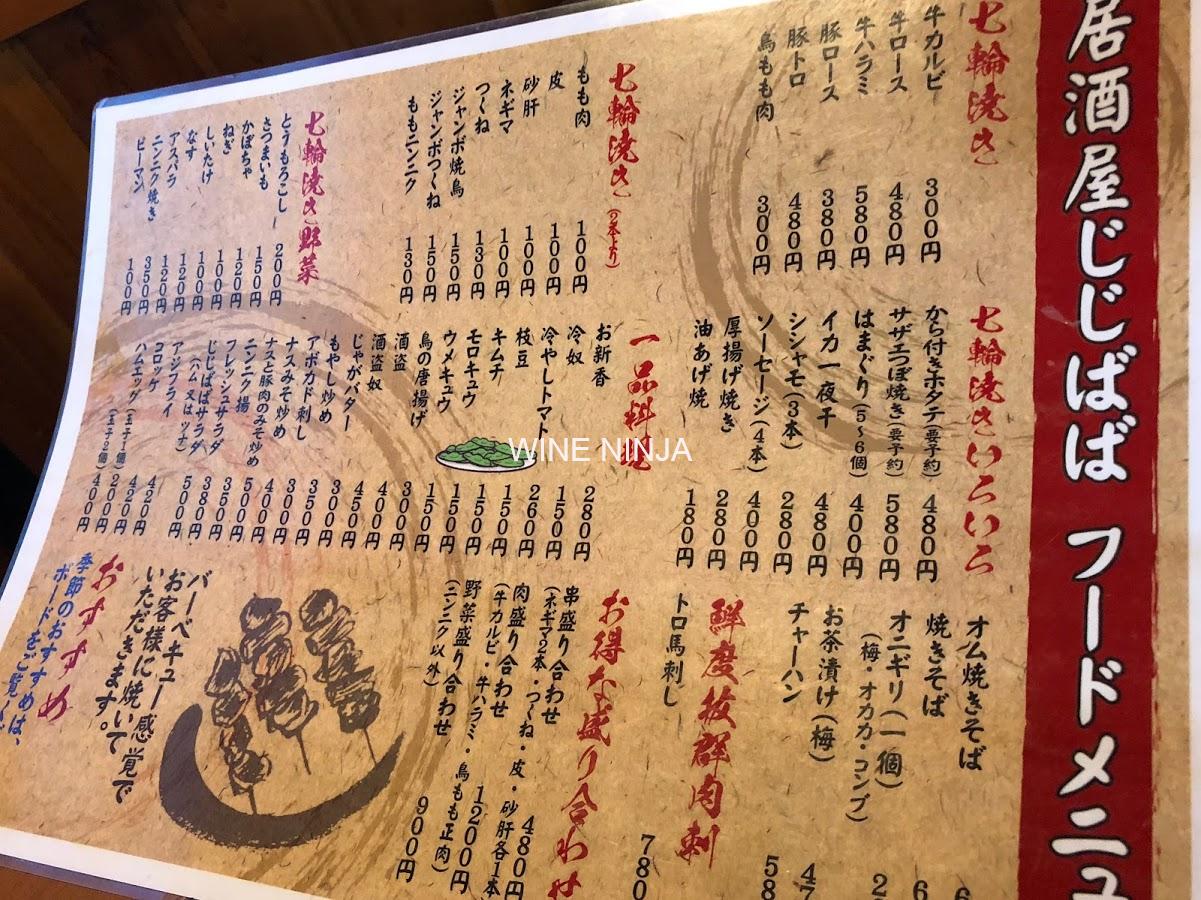 居酒屋じじばば フードメニュ
七輪焼き
牛カルビ 300円
牛ロース 480円
牛ハラミ 580円
豚ロース 380円
豚トロ 480円
鳥もも肉 300円
七輪焼きいろいろ
から付きホタテ(要予約) 480円
サザエつぼ焼き(要予約) 580円
はまぐり(5～6個) 400円
イカ一夜干 480円
シシャモ(3本) 280円
ソーセージ(4本) 400円
厚揚げ焼き 280円
油あげ焼 180円
オム焼きそば
焼きそば
オニギリ(一個)
(梅・オカカ・コンブ)
お茶漬け(梅)
チャーハン
鮮度抜群肉刺
トロ馬刺し 780
七輪焼き(2本より)
もも肉 100円
皮 100円
砂肝 100円
ネギマ 100円
つくね 130円
ジャンボ焼鳥 150円
ジャンボつくね 150円
ももニンニク 130円
一品料理
お新香 280円
冷奴 150円
冷やしトマト 260円
枝豆 150円
キムチ 150円
モロキュウ 150円
ウメキュウ 150円
鳥の唐揚げ
酒盗
酒盗奴
じゃがバター
もやし炒め
アボカド刺し
ナスみそ炒め
ナスと豚肉のみそ炒め
ニンニク揚
フレッシュサラダ
じじばばサラダ
(ハム又はツナ) 500円
アジフライ 420円
コロッケ
ハムエッグ(玉子1個) 200円
(玉子2個) 400円
お得な盛り合わせ
串盛り合わせ 480円
(ネギマ2本・つくね・皮・砂肝各1本)
肉盛り合わせ 1200円
(牛カルビ・牛ハラミ・鳥もも正肉)
野菜盛り合わせ 900円
(ニンニク以外)
七輪焼き野菜
とうもろこし 200円
さつまいも 150円
かぼちゃ 120円
ねぎ 100円
しいたけ 100円
なす 120円
アスパラ 120円
ニンニク焼き 350円
ピーマン 100円
バーベキュー感覚で
お客様に焼いて
いただきます。
おすすめ
季節のおすすめは、
ボードをご覧
WINE NINJA